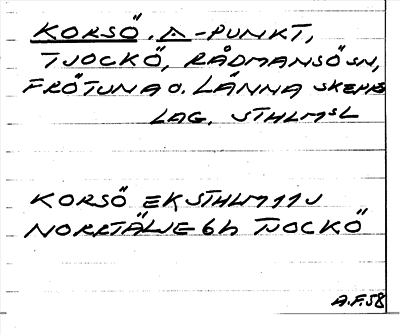 KORSÖ. A-PUNKT,
TJOCKÖ, RÅDMANSÖ SN,
FRÖTUNA O. LÄNNA SKEPPS
LAG. STHLMSL
KORSÖ EK STHLM 11 J
NORRTÄLJE 6h TJOCKÖ
A.F.58